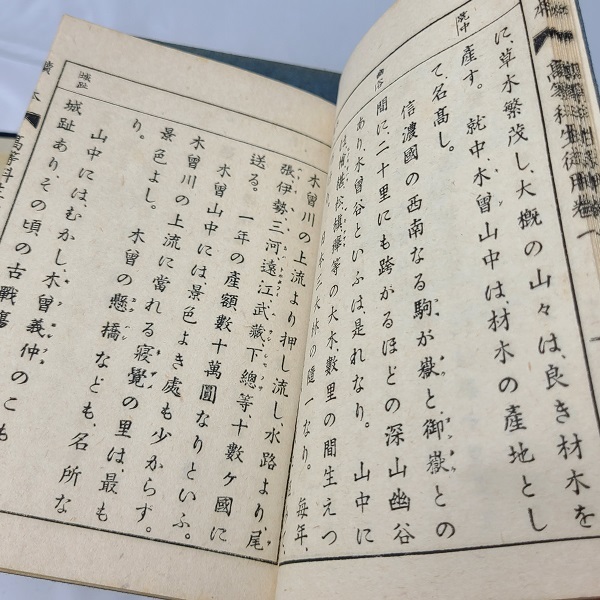 高等科生徒用卷一
就中
に、草木繁茂し、大概の山々は、良き材木を
産す。就中、木曾山中は、材木の産地とし
て、名高し。
幽谷
信濃國の西南なる駒が嶽と、御嶽との
間に、二十里にも跨がるほどの深山幽谷
あり、木曾谷といふは、是れなり。山中に
等の大木、數里の間生えつ
大林の隨一なり。每年、
木曾川の上流より押し流し、水路より、尾
張、伊勢、三河、遠江、武藏、下總等、十數ケ國に
送る。一年の產額數十萬圓なりといふ。
木曾山中には景色よき處も少からず。
木曾川の上流に當れる寢覺の里は、最も
景色よし。木曾の懸橋なども、名所な
り。
城趾
山中には、むかし、木曾義仲のこも
城趾あり、その頃の古戰場
讀本